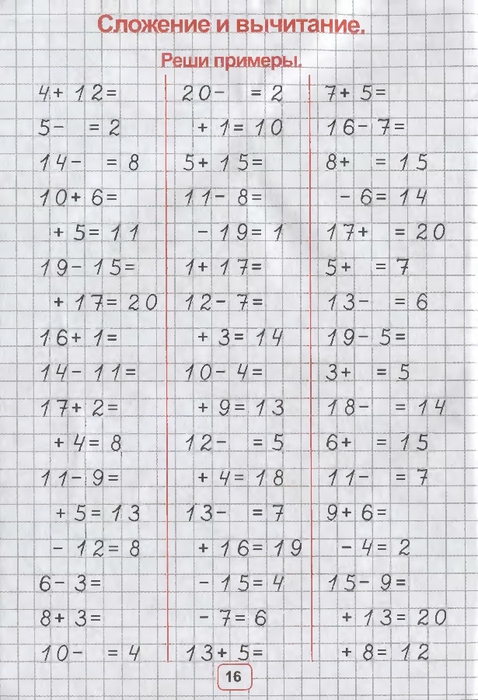 Сложение и вычитание.
Реши примеры.
4+ 12=
5-   = 2
14-   = 8
10+ 6=
  + 5= 11
19- 15=
  + 17= 20
16+ 1=
14- 11=
17+ 2=
  + 4= 8
11- 9=
  + 5= 13
  - 12= 8
6- 3=
8+ 3=
10-   = 4
20-   = 2
  + 1= 10
5+ 15=
11- 8=
  - 19= 1
1+ 17=
12- 7=
  + 3= 14
10- 4=
  + 9= 13
12-   = 5
  + 4= 18
13-   = 7
  + 16= 19
  - 15= 4
  - 7= 6
13+ 5=
7+ 5=
16- 7=
8+   = 15
  - 6= 14
17+   = 20
5+   = 7
13-   = 6
19- 5=
3+   = 5
18-   = 14
6+   = 15
11-   = 7
9+ 6=
  - 4= 2
15- 9=
  + 13= 20
  + 8= 12
16